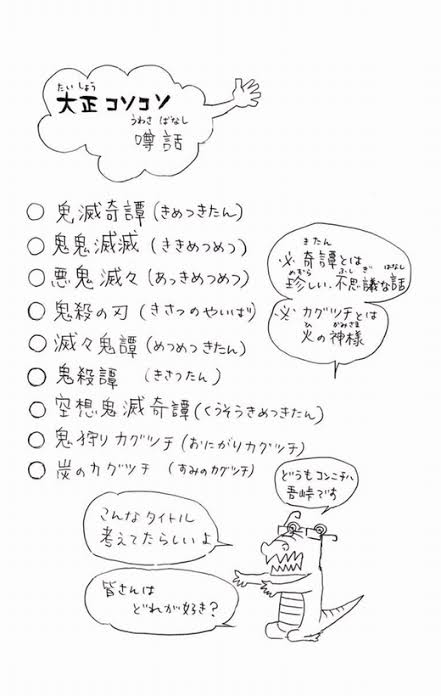 たいしょう
大正コソコソ
うわさばなし
噂話
○ 鬼滅奇譚(きめつきたん)
○ 鬼鬼滅滅(ききめつめつ)
○ 悪鬼滅々(あっきめつめつ)
○ 鬼殺の刃(きさつのやいば)
○ 滅々鬼譚(めつめつきたん)
○ 鬼殺譚 (きさつたん)
○ 空想鬼滅奇譚(くうそうきめつきたん)
○ 鬼狩りカグツチ(おにがりカグツチ)
○ 炭のカグツチ (すみのカグツチ)
きたん
※奇譚とは
めずら ふしぎ はなし
珍しい・不思議な話
※カグツチとは
ひ かみさま
火の神様
どうもコンニチハ
吾峠です
こんなタイトル
考えてたらしいよ
皆さんは
どれが好き?